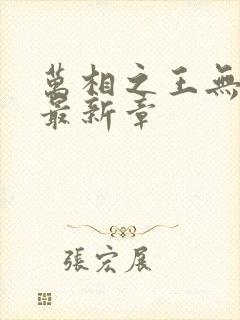 萬相之王無
最新章
張宏展